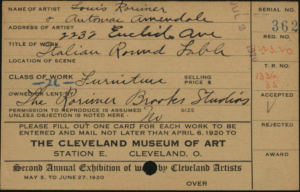 NAME OF ARTIST Louis Rorimer
& Antonio Amendale
ADDRESS OF ARTIST
2232 Euclid Ave
TITLE OF WORK
Italian Round Table
LOCATION OF SCENE
CLASS OF WORK Furniture SELLING PRICE $
OWNED OR LENT BY
The Rorimer Brooks Studios
PERMISSION TO REPRODUCE IS ASSUMED UNLESS OBJECTION IS NOTED HERE No SIZE
PLEASE FILL OUT ONE CARD FOR EACH WORK TO BE
ENTERED AND MAIL NOT LATER THAN APRIL 6, 1920 TO
THE CLEVELAND MUSEUM OF ART
STATION E. CLEVELAND, O.
Second Annual Exhibition of work by Cleveland Artists
MAY 5, TO JUNE 27, 1920 OVER
SERIAL NO.
362
REC. NO.
T. R. NO.
ACCEPTED
NOT ACCEPTED